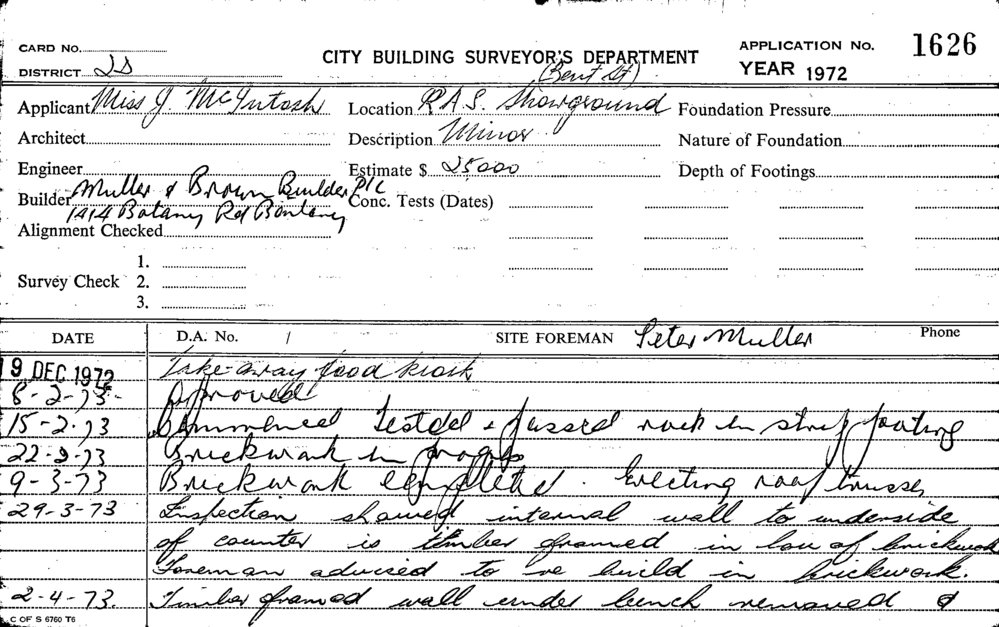 CARD NO.
CITY BUILDING SURVEYOR'S DEPARTMENT
APPLICATION NO. 1626
DISTRICT 2S
(Bent St)
YEAR 1972
Applicant Miss J. McIntosh Location R.A.S. Showground Foundation Pressure
Architect Description Minor Nature of Foundation
Engineer Estimate $ 25000 Depth of Footings
Builder Muller & Brown Builder P/L Conc. Tests (Dates)
1414 Botany Rd Bontany
Alignment Checked
1.
Survey Check 2.
3.
DATE D.A. No. / SITE FOREMAN Peter Muller Phone
9 DEC 1972 Take-away food kiosk
8-2-73 Approved
15-2-73 Commenced Tested & passed rock in strip footing
22-2-73 Brickwork in progress
9-3-73 Brickwork completed. Erecting roof trusses
29-3-73 Inspection showed internal wall to underside
of counter is timber framed in lou of brickwork
Foreman advised to re build in brickwork.
2-4-73. Timber framed wall under bench removed &
C OF S 6760 T6